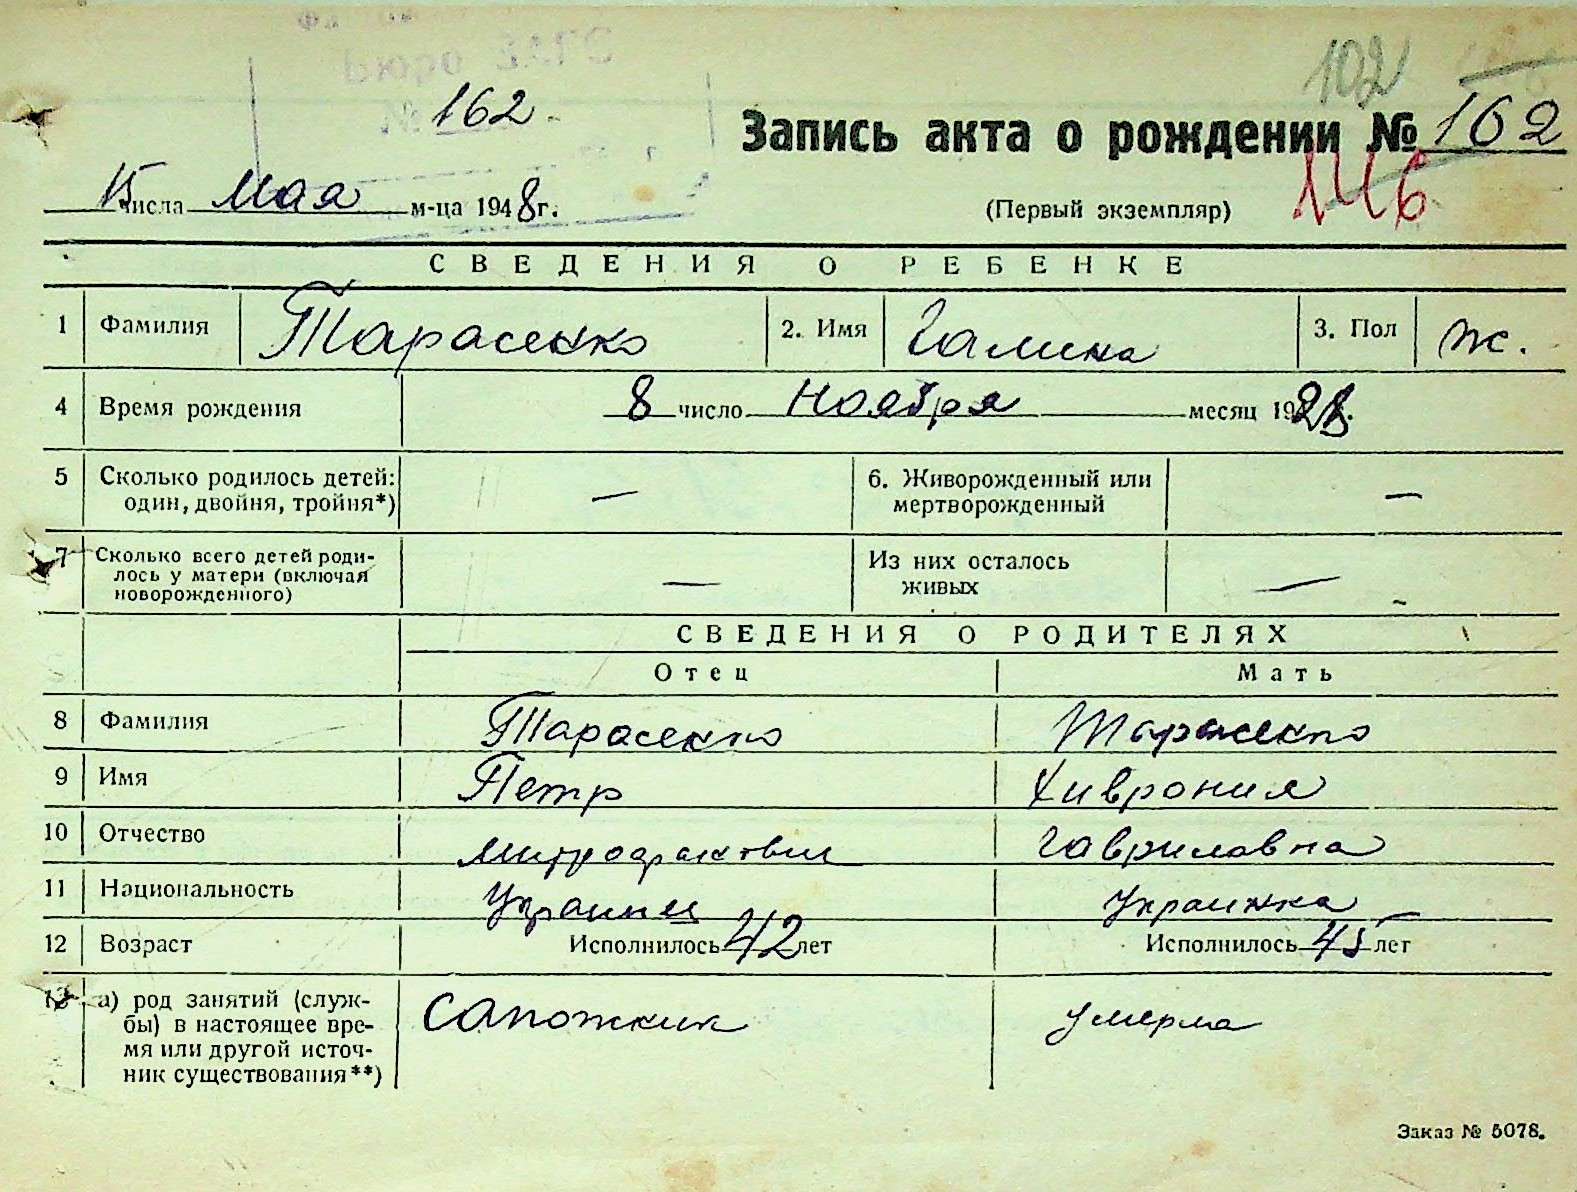 102
162
Запись акта о рождении № 162
15 числа Мая м-ца 1948 г.
(Первый экземпляр) 146
СВЕДЕНИЯ О РЕБЕНКЕ
1 Фамилия Тарасенко 2. Имя Галина 3. Пол ж.
4 Время рождения 8 число ноября месяц 1928.
5 Сколько родилось детей: один, двойня, тройня*) — 6. Живорожденный или мертворожденный —
7 Сколько всего детей родилось у матери (включая новорожденного) — Из них осталось живых —
СВЕДЕНИЯ О РОДИТЕЛЯХ
Отец Мать
8 Фамилия Тарасенко Тарасенко
9 Имя Петр Хиврония
10 Отчество Гавриловна
11 Национальность Украинец Украинка
12 Возраст Исполнилось 42 лет Исполнилось 45 лет
13 а) род занятий (служ- Сапожник умерла
бы) в настоящее вре-
мя или другой источ-
ник существования**)
Заказ № 5078.